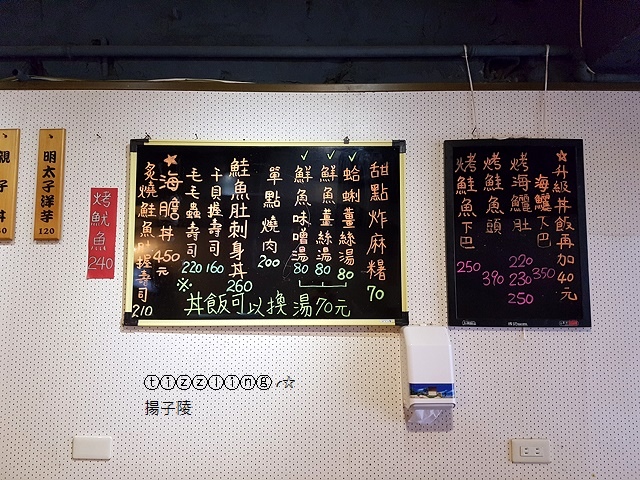 親子丼
明太子洋芋
120
烤魷魚
240
甜點炸麻糬
70
✓蛤蜊薑絲湯
80
✓鮮魚薑絲湯
80
✓鮮魚味噌湯
80
單點燒肉
200
鮭魚肚刺身丼
260
干貝握壽司
160
毛毛蟲壽司
220
★海膽丼
450元
炙燒鮭魚肚握壽司
210
※丼飯可以換湯70元
★升級丼飯再加40元
海鱺下巴
350
烤海鱺肚
220
230
250
烤鮭魚頭
390
烤鮭魚下巴
250
tizzling
揚子陵